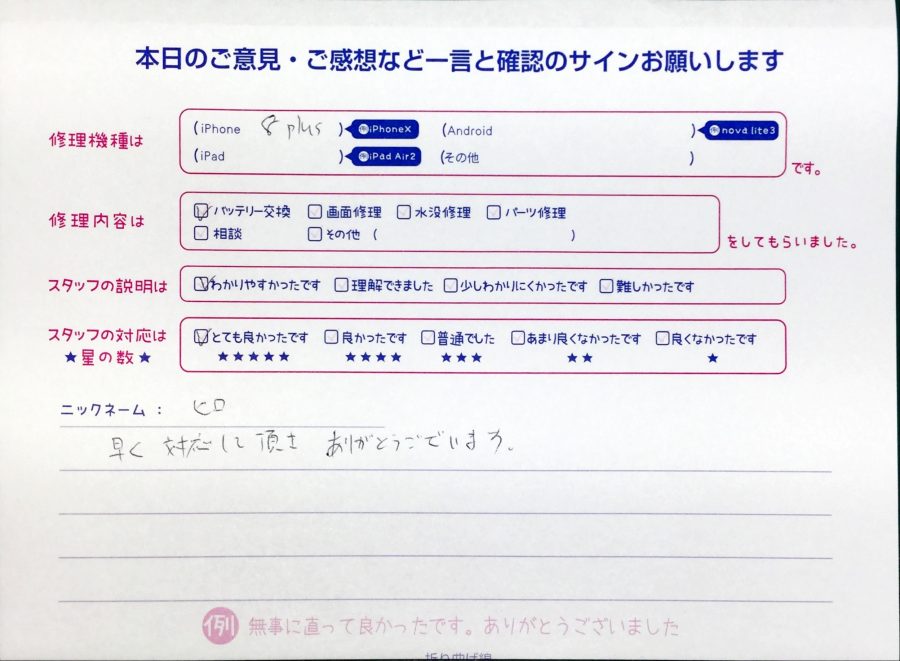 本日のご意見・ご感想など一言と確認のサインお願いします
修理機種は
(iPhone 8 plus ) 例iPhoneX (Android ) 例nova lite3
(iPad ) 例iPad Air2 (その他 )
です。
修理内容は
バッテリー交換 画面修理 水没修理 パーツ修理
相談 その他 ( )
をしてもらいました。
スタッフの説明は
わかりやすかったです 理解できました 少しわかりにくかったです 難しかったです
スタッフの対応は
★星の数★
とても良かったです 良かったです 普通でした あまり良くなかったです 良くなかったです
★★★★★ ★★★★ ★★★ ★★ ★
ニックネーム： ヒロ
早く対応して頂き ありがとうございます。
例 無事に直って良かったです。ありがとうございました
折り曲げ線